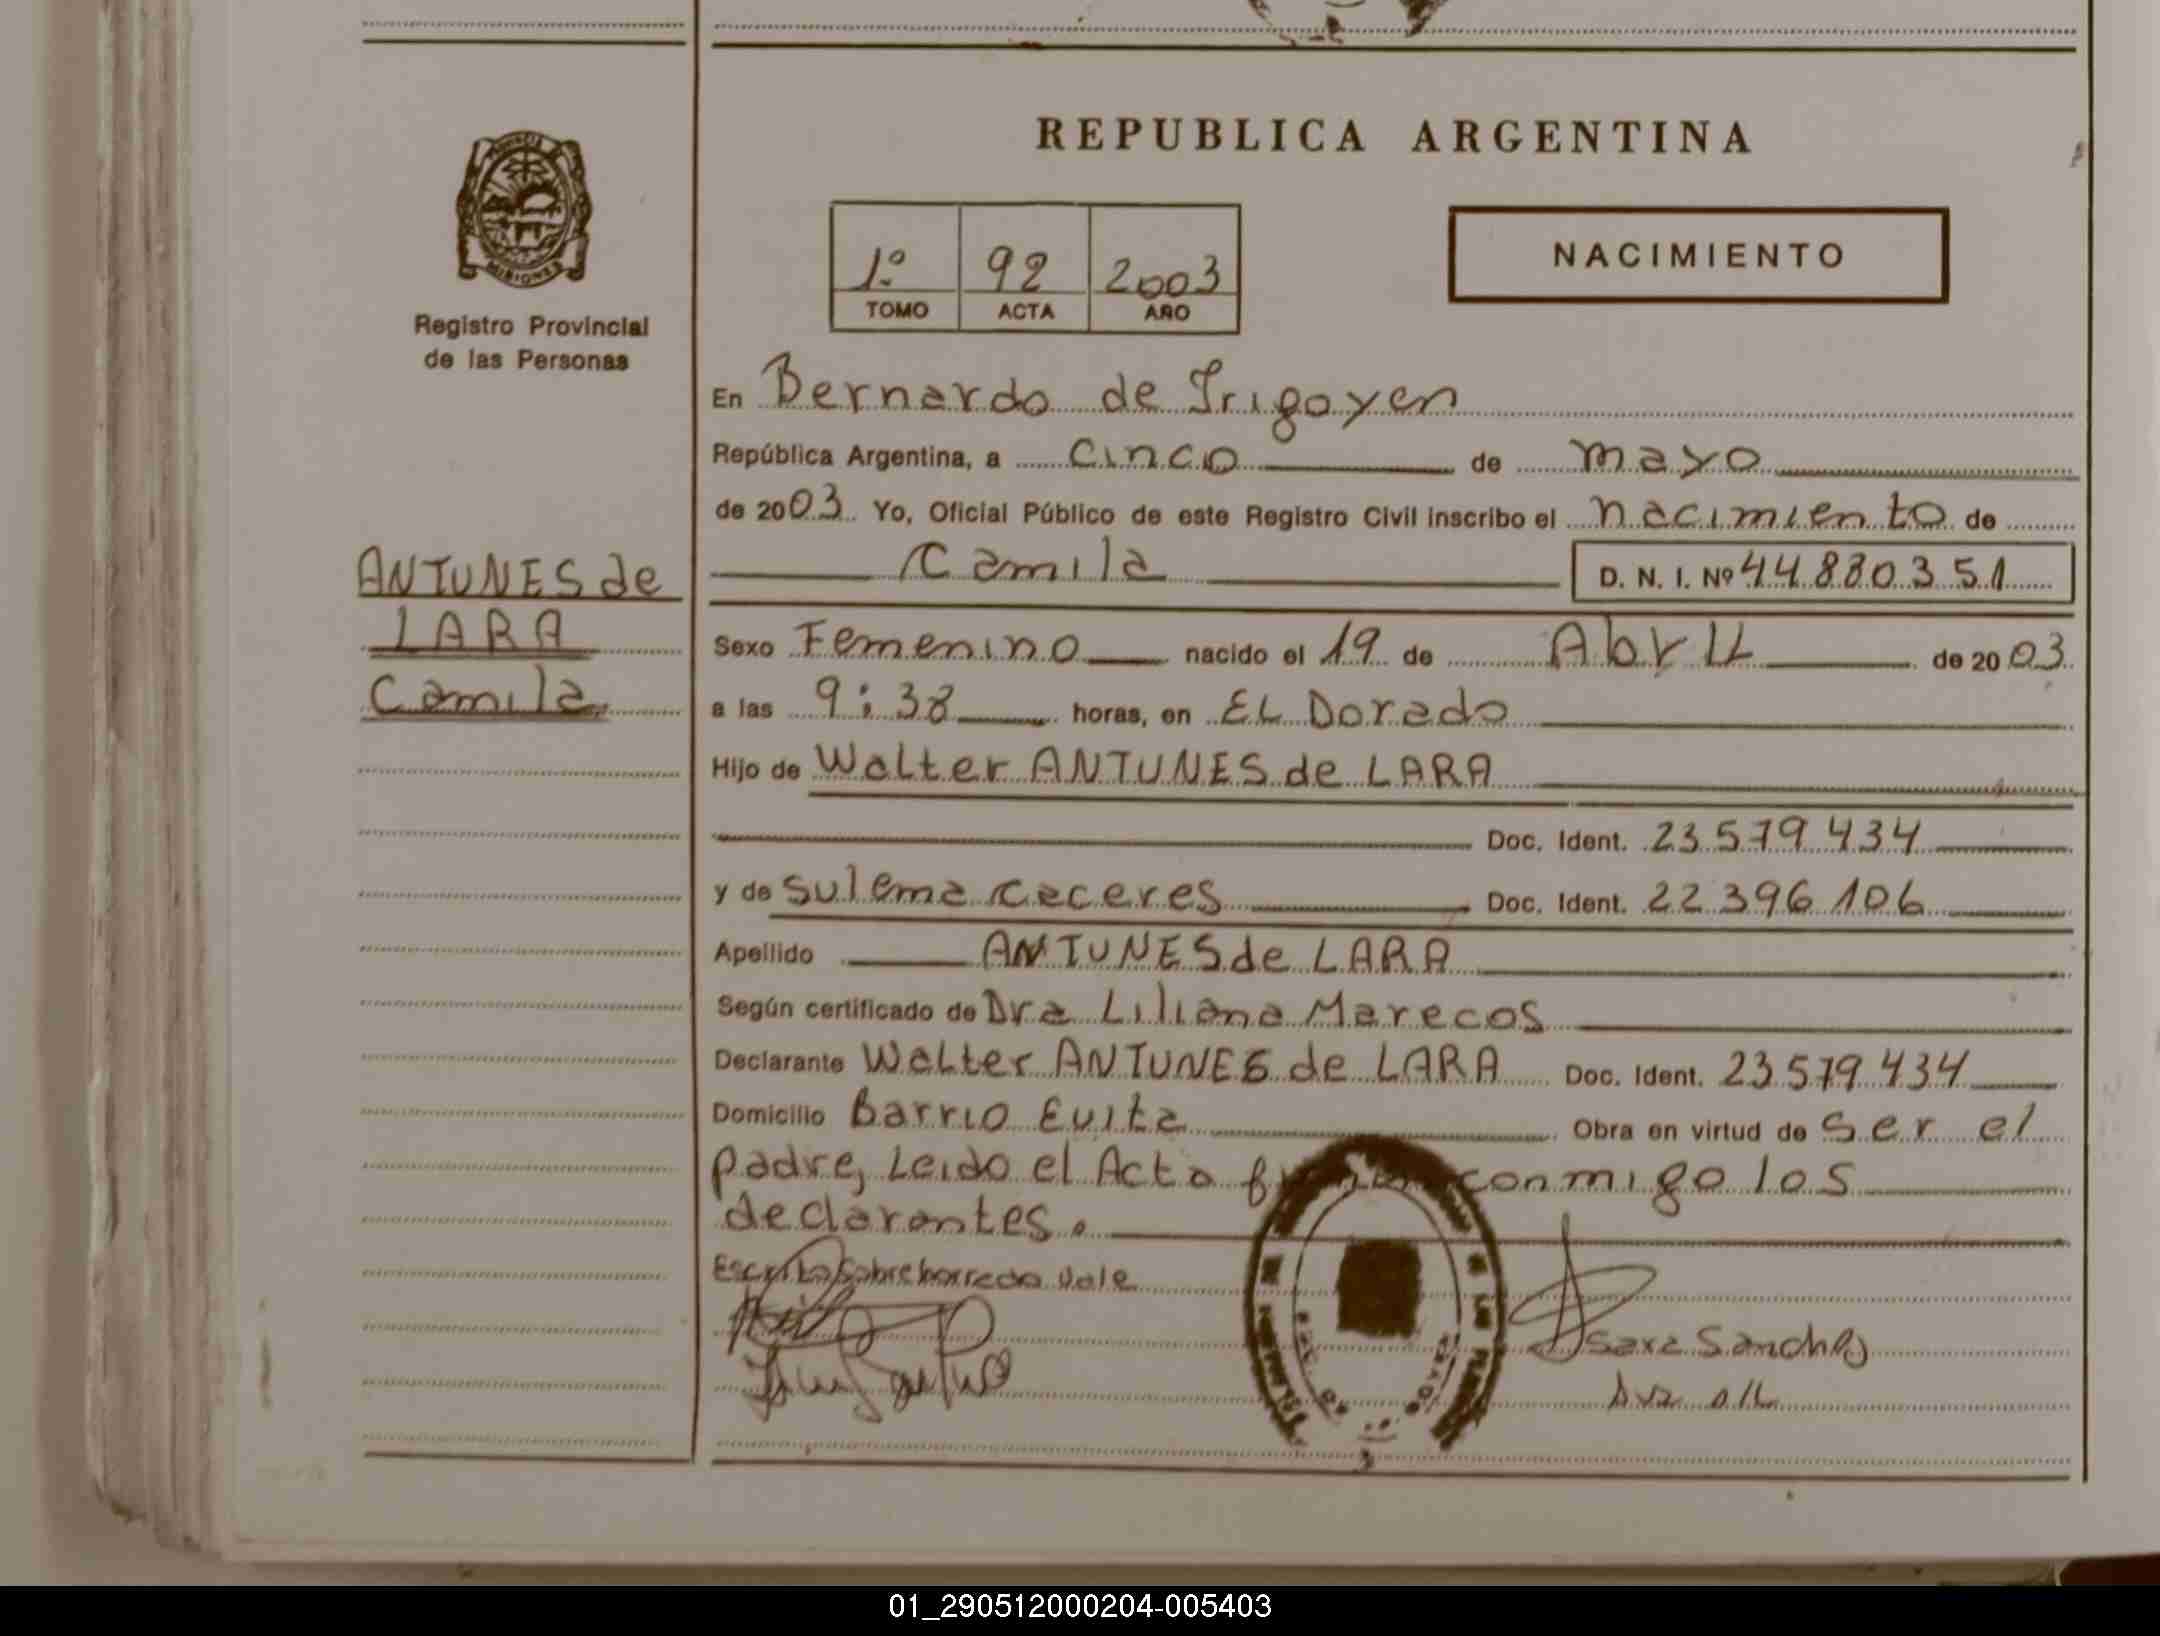 PROVINCIA
MISIONES
Registro Provincial
de las Personas
ANTUNES de
LARA
Camila
REPUBLICA ARGENTINA
1º 92 2003
TOMO ACTA AÑO
NACIMIENTO
En Bernardo de Irigoyen
República Argentina, a cinco de mayo
de 2003. Yo, Oficial Público de este Registro Civil inscribo el nacimiento de
Camila D. N. I. Nº 44 880 351
Sexo Femenino nacido el 19 de AbrIL de 2003
a las 9:38 horas, en EL Dorado
Hijo de Walter ANTUNES de LARA
Doc. Ident. 23 579 434
y de Sulema Caceres Doc. Ident. 22 396 106
Apellido ANTUNES de LARA
Según certificado de Dra Liliana Marecos
Declarante Walter ANTUNES de LARA Doc. Ident. 23 579 434
Domicilio Barrio Evita Obra en virtud de Ser el
padre, Leido el Acta conmigo los
declarantes.
Escrito sobre borrado vale
Sara Sanchez
01_290512000204-005403